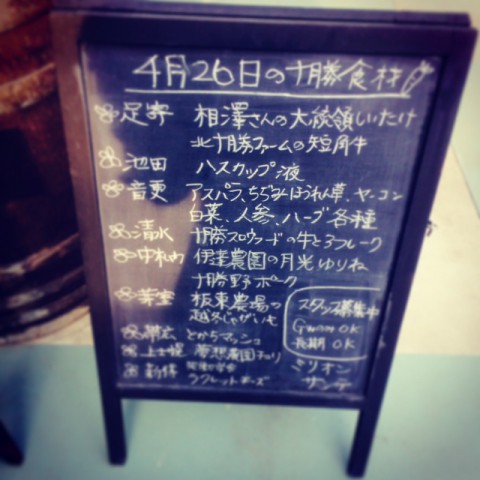 4月26日の十勝食材
足寄 相澤さんの大統領しいたけ
北十勝ファームの短角牛
池田 ハスカップ液
音更 アスパラ、ちぢみほうれん草、ヤーコン
白菜、人参、ハーブ各種
清水 十勝スロウフードの牛とろフレーク
中札内 伊達農園の月光ゆりね
十勝野ポーク
芽室 坂東農場の
越冬じゃがいも
帯広 とかちマッシュ
上士幌 夢想農園
新得
ラクレットチーズ
スタッフ募集中
GWのみOK
長期OK
ミリオン
サンテ